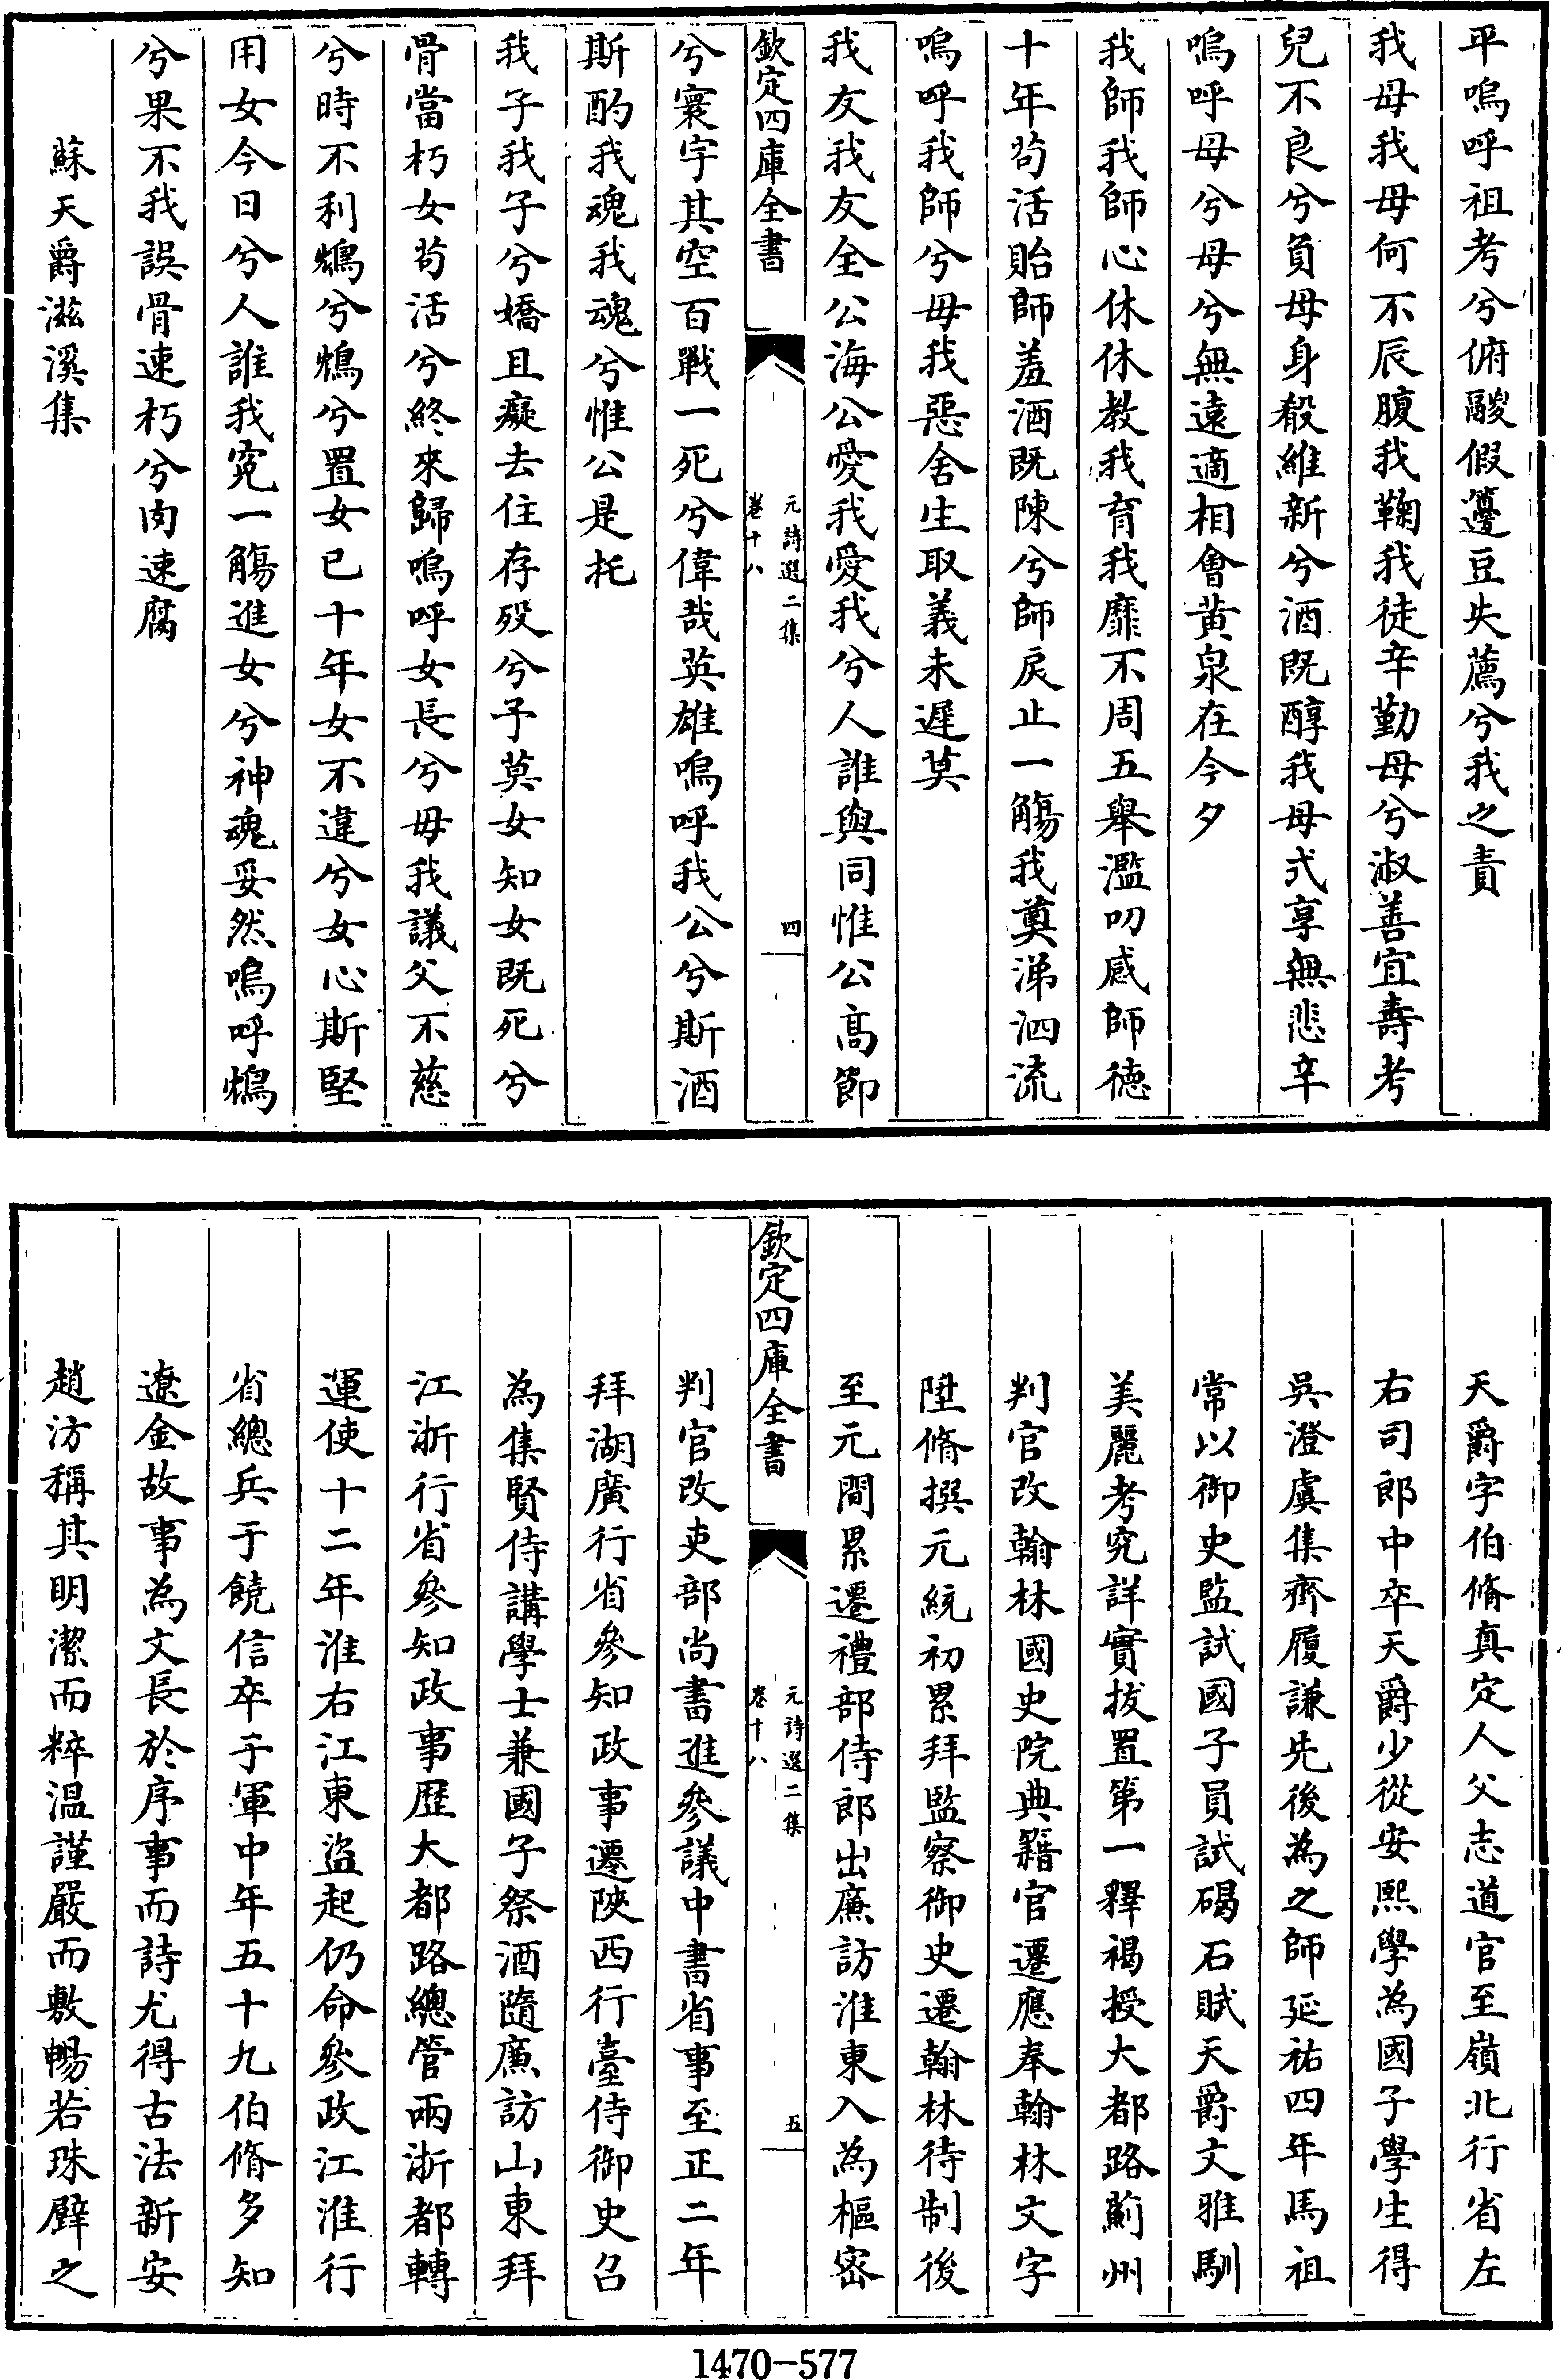 平嗚呼祖考兮俯酸假籩豆失薦兮我之責
我母我母何不辰腹我鞠我徒辛勤母兮淑善宜壽考
兒不良兮負母身殺維新兮酒既醇我母式享無悲辛
嗚呼母兮母兮無遠適相會黄泉在今夕
我師我師心休休教我育我靡不周五舉濫叨感師徳
十年苟活貽師羞酒既陳兮師戾止一觴我奠涕泗流
嗚呼我師兮毋我惡舍生取義未遲莫
我友我友全公海公愛我愛我兮人誰與同惟公髙節
欽定四庫全書
元詩選二集
卷十八
四
兮寰宇其空百戰一死兮偉哉英雄嗚呼我公兮斯酒
斯酌我魂我魂兮惟公是托
我子我子兮嬌且癡去住存歿兮予莫女知女既死兮
骨當朽女苟活兮終來歸嗚呼女長兮毋我議父不慈
兮時不利鵷兮鵷兮置女已十年女不違兮女心斯堅
用女今日兮人誰我寃一觴進女兮神魂妥然嗚呼鵷
兮果不我誤骨速朽兮肉速腐
蘇天爵滋溪集
天爵字伯脩真定人父志道官至嶺北行省左
右司郎中卒天爵少從安熙學為國子學生得
吳澄虞集齊履謙先後為之師延祐四年馬祖
常以御史監試國子員試碣石賦天爵文雅馴
美麗考究詳實拔置第一釋褐授大都路薊州
判官改翰林國史院典籍官遷應奉翰林文字
陞脩撰元統初累拜監察御史遷翰林待制後
至元間累遷禮部侍郎出廉訪淮東入為樞密
欽定四庫全書
元詩選二集
卷十八
五
判官改吏部尚書進參議中書省事至正二年
拜湖廣行省參知政事遷陜西行臺侍御史召
為集賢侍講學士兼國子祭酒隨廉訪山東拜
江浙行省參知政事歴大都路總管兩浙都轉
運使十二年淮右江東盜起仍命參政江淮行
省總兵于饒信卒于軍中年五十九伯脩多知
遼金故事為文長於序事而詩尤得古法新安
趙汸稱其明潔而粹温謹嚴而敷暢若珠璧之
1470-577